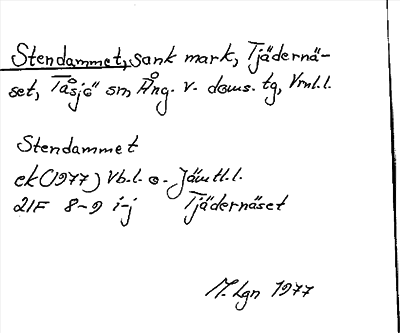 Stendammet, sank mark, Tjädernä-
set, Tåsjö sn Ång. v. doms. tg, Vrnl.l.
Stendammet
ek (1977) Vb.l. o. Jämtl.l.
21F 8-9 i-j Tjädernäset
M. Lgn 1977